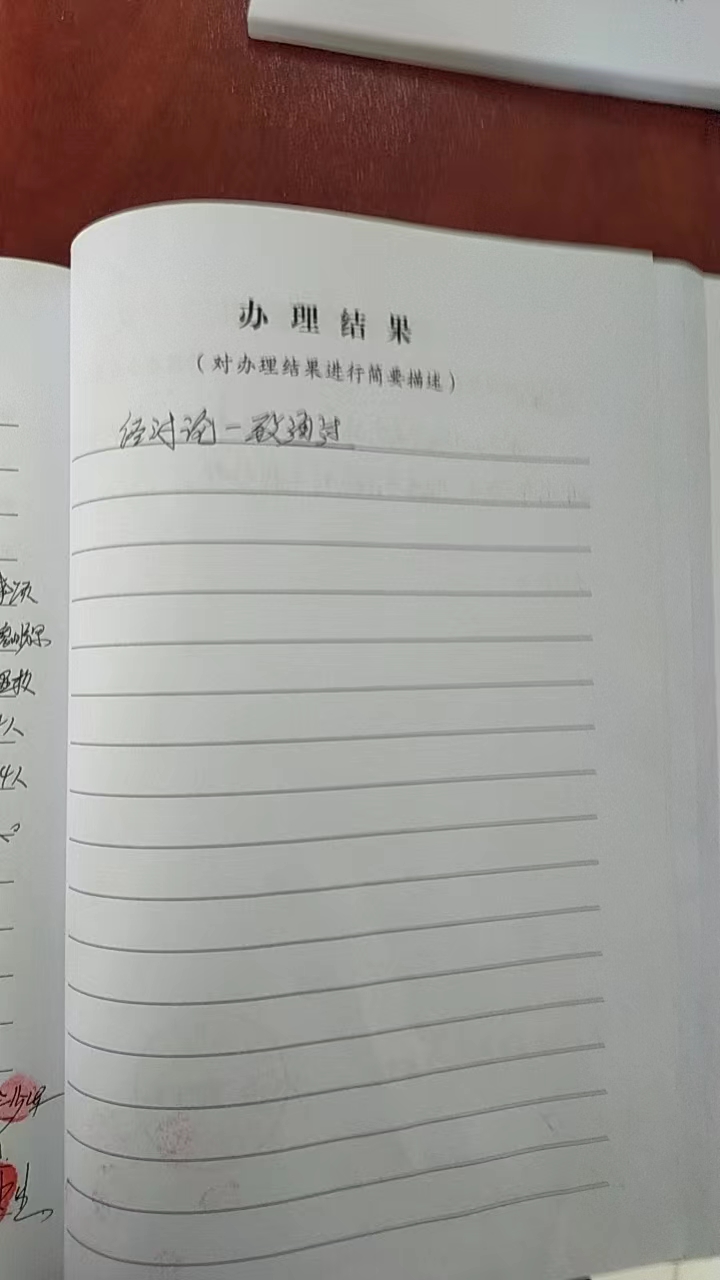 办理结果
（对办理结果进行简要描述）
经讨论一致通过
事项
4人